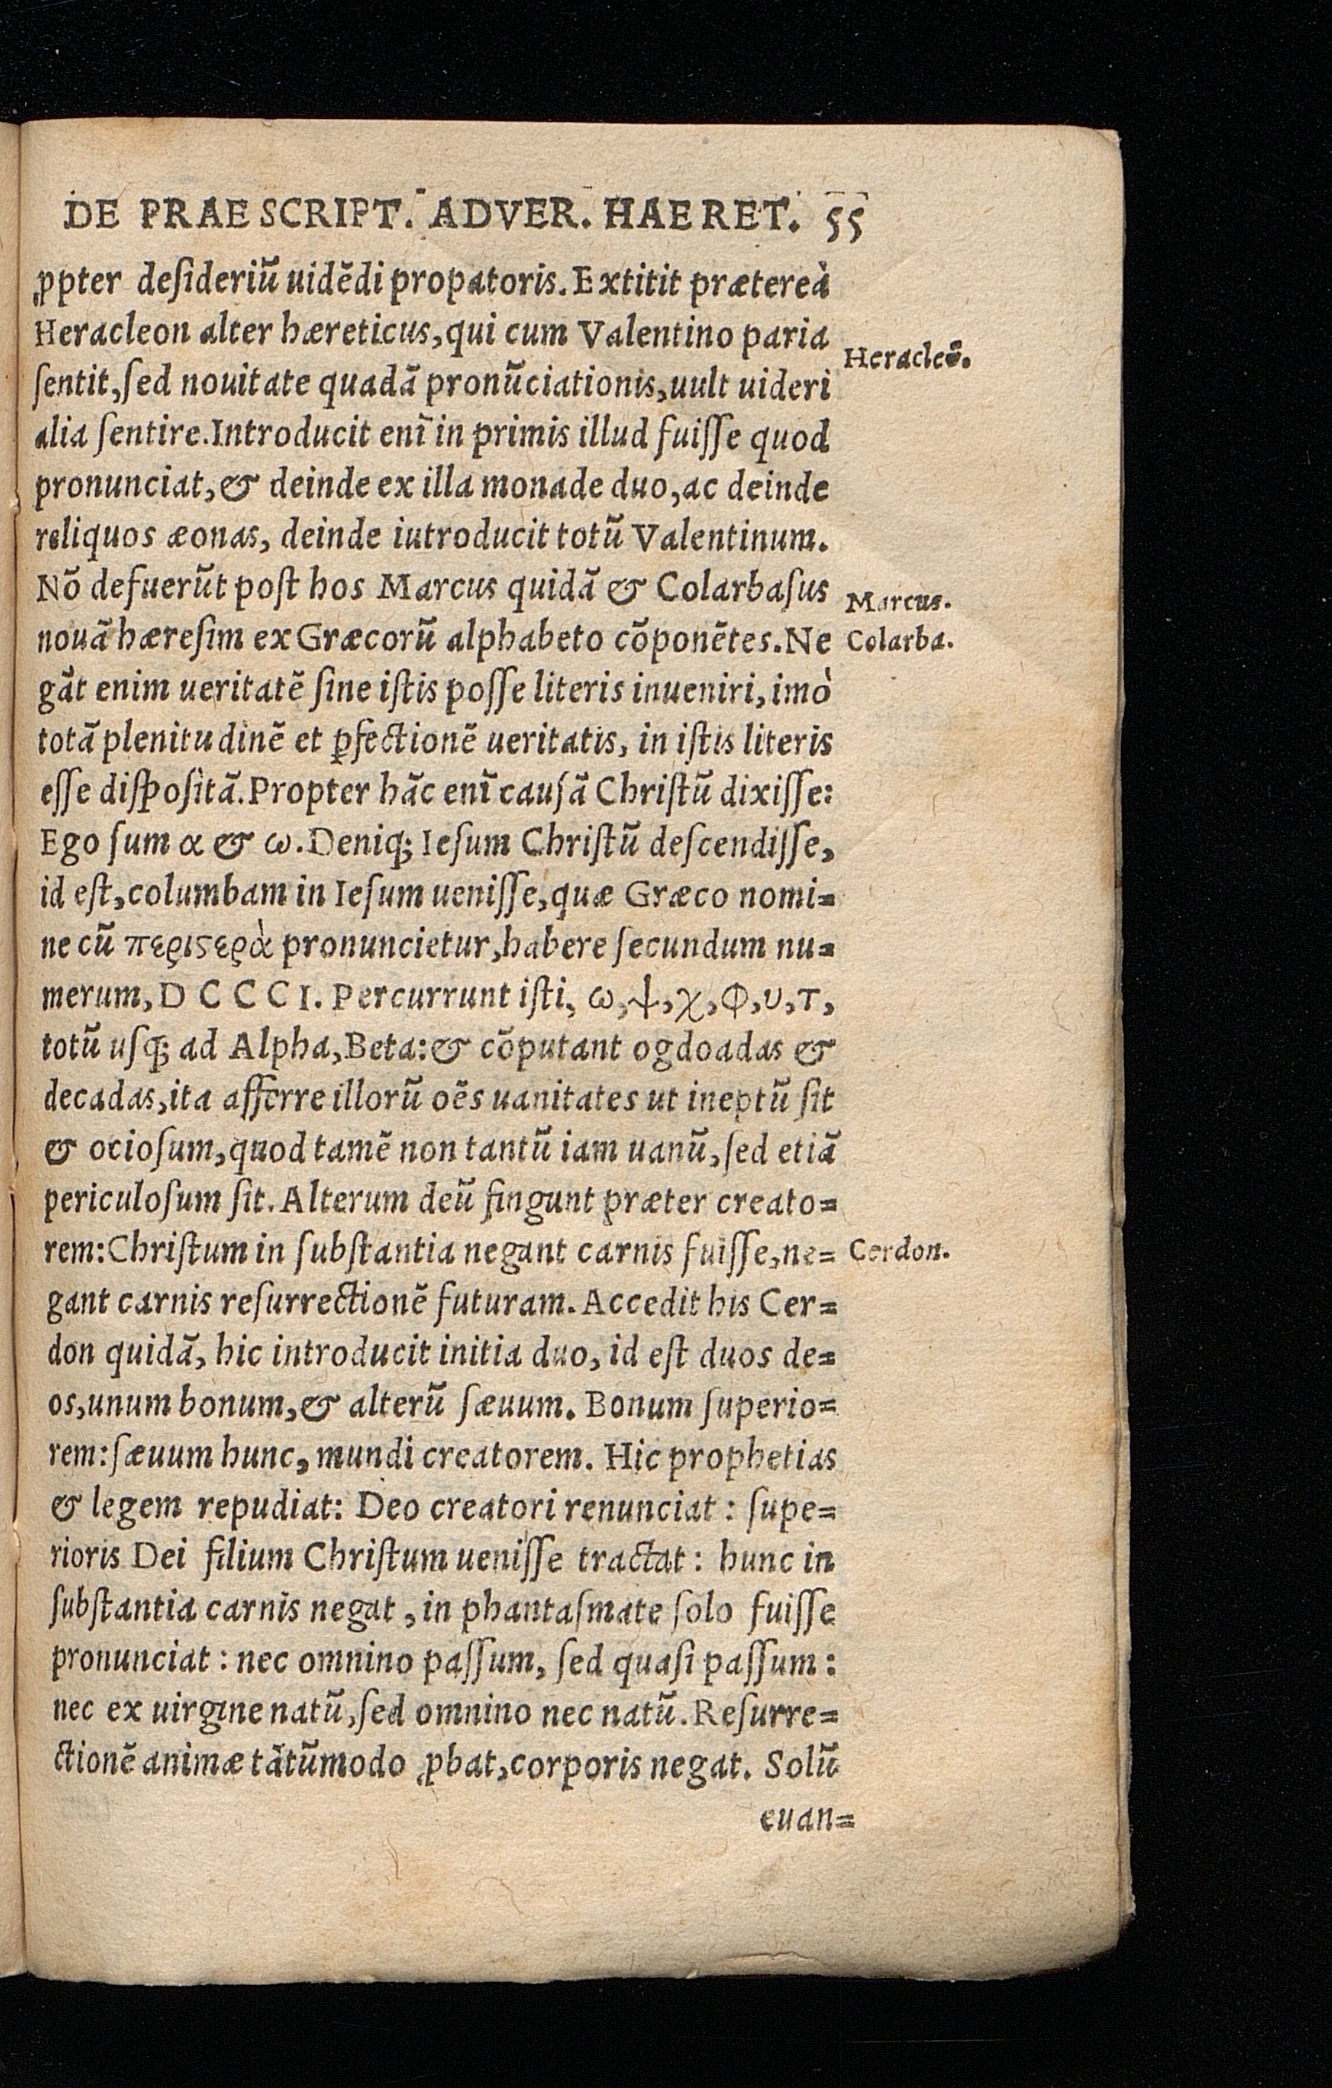 DE PRAESCRIPT. ADVER. HAERET. 55
ꝓpter desideriũ uidẽdi propatoris. Extitit prætereà
Heracleon alter hæreticus, qui cum Valentino paria
Heracleõ.
ſentit, ſed nouitate quadã pronũciationis, uult uideri
alia ſentire. Introducit enĩ in primis illud fuiſſe quod
pronunciat, & deinde ex illa monade duo, ac deinde
reliquos æonas, deinde iutroducit totũ Valentinum.
Nõ defuerũt poſt hos Marcus quidã & Colarbaſus
Marcus.
nouã hæreſim ex Græcorũ alphabeto cõponẽtes. Ne
Colarba.
gãt enim ueritatẽ ſine iſtis poſſe literis inueniri, imò
totã plenitudinẽ et ꝑfectionẽ ueritatis, in iſtis literis
eſſe diſpoſitã. Propter hãc enĩ cauſã Chriſtũ dixiſſe:
Ego ſum α & ω. Deniqꝫ Ieſum Chriſtũ deſcendiſſe,
id eſt, columbam in Ieſum ueniſſe, quæ Græco nomi=
ne cũ περιςερὰ pronuncietur, habere ſecundum nu=
merum, D C C C I. Percurrunt iſti, ω, ψ, χ, φ, υ, τ,
totũ uſqꝫ ad Alpha, Beta: & cõputant ogdoadas &
decadas, ita afferre illorũ oẽs uanitates ut ineptũ ſit
& ocioſum, quod tamẽ non tantũ iam uanũ, ſed etiã
periculoſum ſit. Alterum deũ fingunt præter creato=
rem: Chriſtum in ſubſtantia negant carnis fuiſſe, ne=
Cerdon.
gant carnis reſurrectionẽ futuram. Accedit his Cer=
don quidã, hic introducit initia duo, id eſt duos de=
os, unum bonum, & alterũ ſæuum. Bonum ſuperio=
rem: ſæuum hunc, mundi creatorem. Hic prophetias
& legem repudiat: Deo creatori renunciat: ſupe=
rioris Dei filium Chriſtum ueniſſe tractat: hunc in
ſubſtantia carnis negat, in phantaſmate ſolo fuiſſe
pronunciat: nec omnino paſſum, ſed quaſi paſſum:
nec ex uirgine natũ, ſed omnino nec natũ. Reſurre=
ctionẽ animæ tãtũmodo ꝓbat, corporis negat. Solũ
euan=